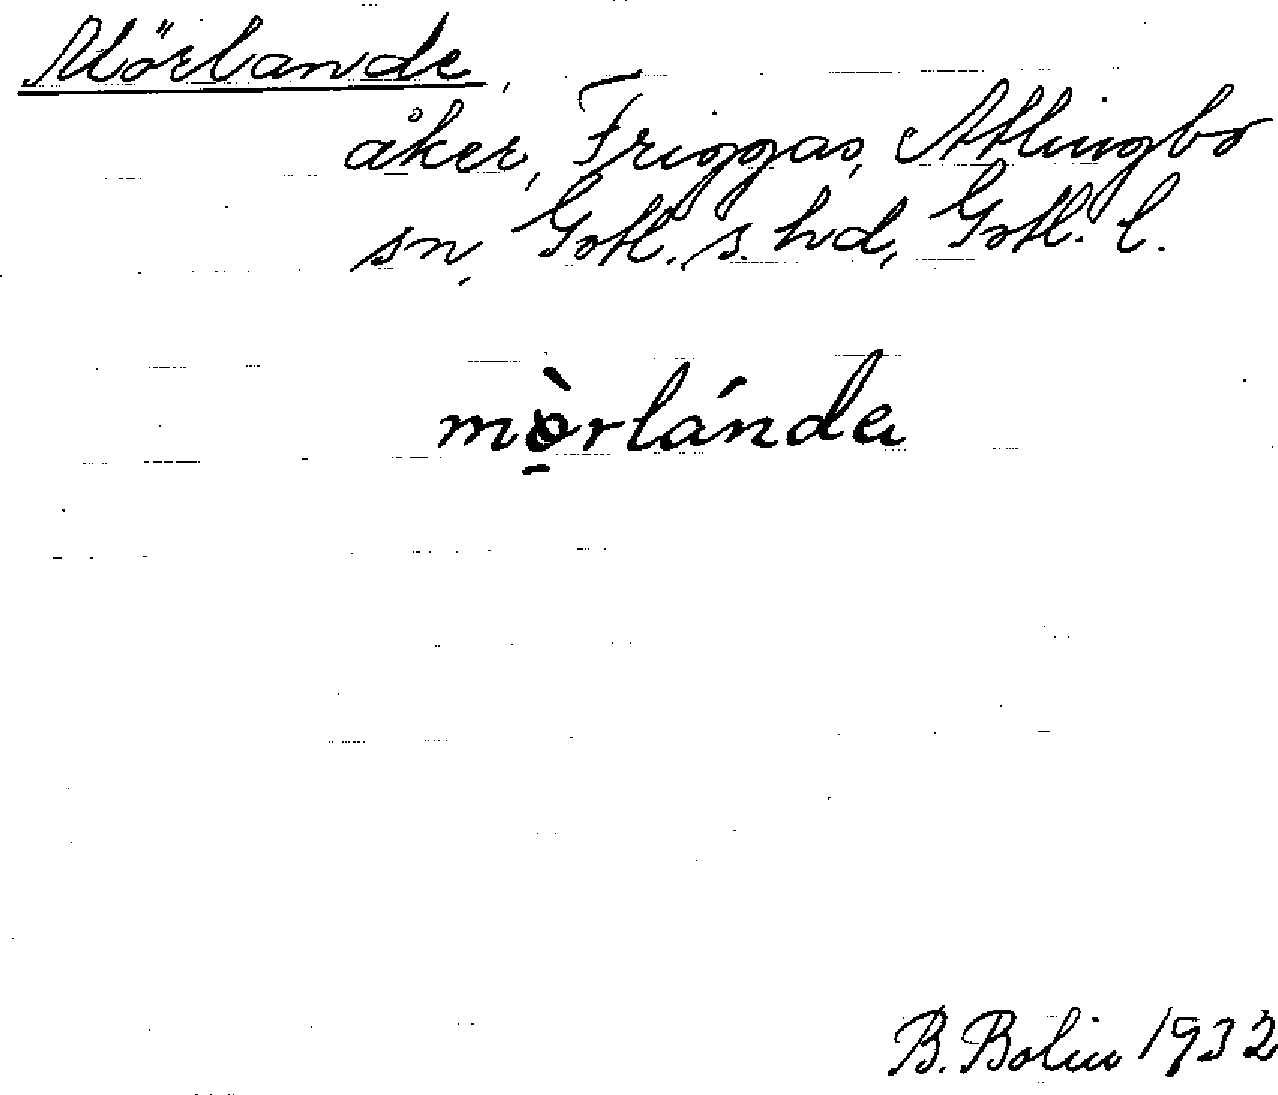 Mörlande,
åker, Friggas, Atlingbo
sn, Gotl. s. hd, Gotl. l.
mə̀rlánda
B. Bolin 1932